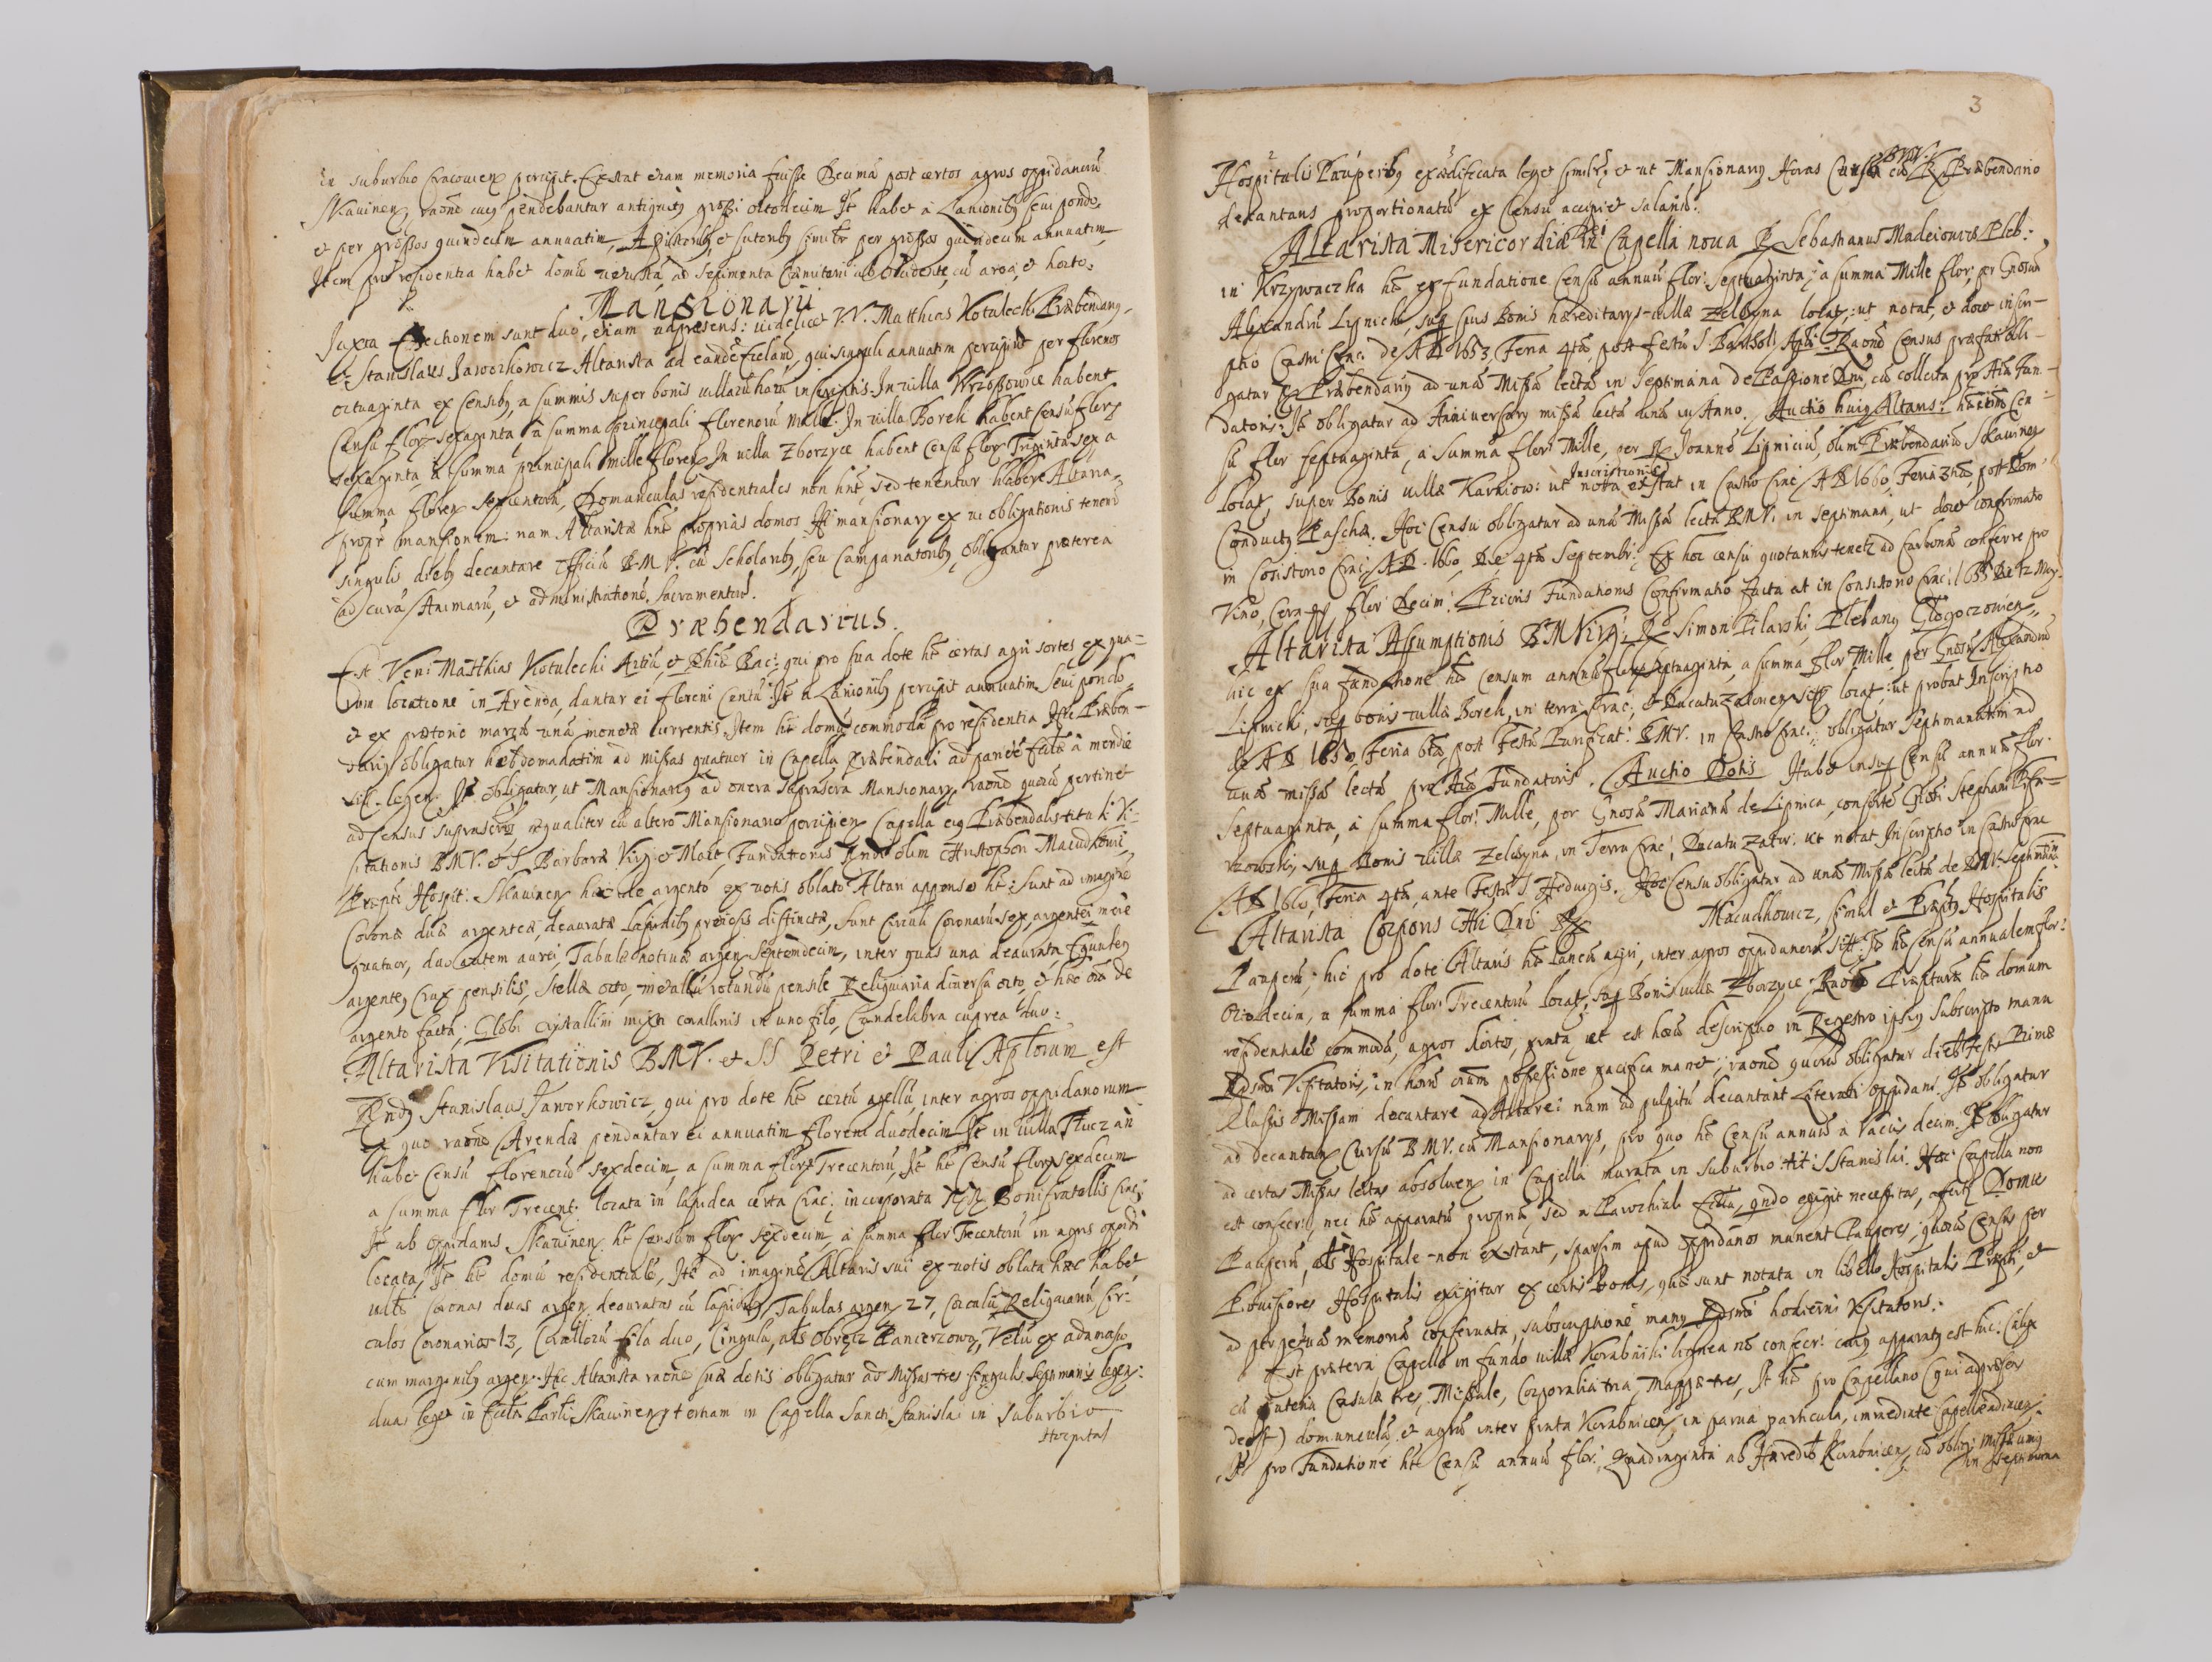 in suburbio Cracovien percipit. Exstat etiam memoria fuisse Decimã post certos agros oppidanorũ
Skavinen, raõne cuius pendebantur antiquitus grossi octodecim. It habet à Lanionibus sevi pondo,
et per grossos quindecim annuatim, A Pistoribus, et sutoribus similr per grossos quindecim annuatim,
Item pro residentia habet domũ vetustã, ad sepimenta Cæmiterii ab Occidente, cũ area, et horto.
Mansionarii
Juxta Erectionem sunt duo, etiam ad præsens: videlicet V.V. Matthias Kotulecki Præbendarius,
et Stanislaus Jaworkowicz Altarista ad eandẽ Ecclam, qui singuli annuatim percipiut per florenos
octuaginta ex Censibus, a summis super bonis villarũ harũ inscriptis. In villa Wrzossowice habent
Censũ flor sexaginta, à summa principali florenorũ mille. In villa Borek habent Censũ flor
sexaginta, à summa principali mille floren. In villa Zborzyce habent Censũ flor Triginta sex a
summa floren sexcentorũ, Domunculas residentiales non hnt, sed tenentur habere Altaria
propr mansionem: nam Altaristæ hnt proprias domos. Hi mansionarii ex vi obligationis tenent
singulis diebus decantare Officiũ B.M.V. cũ Scholaribus, seu Campanatoribus, obligantur præterea
ad curã Animarũ, et administrationẽ Sacramentorũ.
Præbendarius.
Est Ven: Matthias Kotulecki Artiũ, et Phiæ Bac: qui pro sua dote ht certas agri sortes ex qua=
rum locatione in Arenda, dantur ei floreni Centũ. It à Lanionibus percipit annuatim sevi pondo,
et ex prætorio marcã unã monetæ currentis. Item ht domũ commodã pro residentia. Hic Præben=
darius obligatur hebdomadatim ad missas quatuor in Capella Præbendali ad parietẽ Ecclæ a meridie
sitã legen. It obligatur, ut Mansionarius ad onera suprascta Mansionarii, raõne quorũ pertinet
ad Census suprasctos æqualiter cũ altero Mansionario percipien. Capella eius Præbendalis tituli Vi=
sitationis B.M.V. et S. Barbaræ Virg: et Mart, Fundationis Rndi olim Christophori Macudkowic,
Præpti Hospit: Skavinen hæc de argento ex votis oblato Altari appenso ht: Sunt ad imaginẽ
Coronæ duæ argenteæ, deauratæ lapidibus preciosis distinctæ, sunt Circuli Coronarũ sex, argentei mere
quatuor, duo autem aurei, Tabulæ votivæ argen Septemdecim, inter quas una deaurata, Equuleus
argenteus, Crux pensilis, Stellæ octo, metallũ rotundũ pensile Reliquiaria diversa octo, et hæc oĩa de
argento facta: Globi crystallini mixti corallinis in uno filo, Candelabra cuprea duo:
Altarista Visitationis B.M.V. et SS Petri et Pauli Aplorum est
Rndus Stanislaus Jaworkowicz, qui pro dote ht certũ agellũ inter agros oppidanorum
ex quo raõne Arendæ pendantur ei annuatim floreni duodecim. It in villa Tluczan
habet Censũ florenorũ sexdecim, a summa flor Trecentorũ, It ht Censũ flor sexdecim
a summa flor Trecent: locata in lapidea certa Crac: incorporata RR Bonifratellis Crac:
It ab oppidanis Skavinen: ht Censum flor sexdecim, à summa flor Trecentorũ in agris oppidi
locata, It ht domũ residentialẽ, Itẽ ad imaginẽ Altaris sui ex votis oblata hæc habet,
vidlt Coronas duas argen deauratas cũ lapidibus, Tabulas argen 27, Reliquiariũ Cir=
culos Coronarios 13, Corallorũ fila duo, Cingulũ, als obręcz Pancerzową, Velũ ex adamasco
cum marginibus argen. Hic Altarista raõne suæ dotis obligatur ad Missas tres singulis septimanis legen:
duas leget in Eccla Parli Skavinen, tertiam in Capella Sancti Stanislai in suburbio
Hospital
3
Hospitalis Pauperibus exædificata leget similr; et ut Mansionarius Horas Cursu B.M.V. cũ R. Præbendario
decantans proportionatũ ex Censu accipiet salariũ.
Altarista Misericordiæ Dei in Capella nova R. Sebastianus Madeiowicz Pleb:
in Krzywaczka ht ex fundatione Censũ annuũ flor: septuaginta, à summa Mille flor, per Gnosum
Alexandrũ Lipnicki, sup suis Bonis hæreditariis villæ Zelczyna locat: ut notat, et docet inscri=
ptio Castri Crac: de A D 1653, Feria 4ta, post festũ S. Barthol: Apli. Raõne Census præfati obli=
gatur R. Præbendarius ad unã Missã lectã in septimana de Passione Dni, cũ collecta pro Aĩa fun=
datoris: It obligatur ad Anniversarius missã lectã unã in Anno. Auctio huius Altaris: hn etiã Cen:
sũ flor septuaginta, a summa flor: Mille, per R. Joannẽ Lipniciũ, olim Præbendariũ Skavinen
locat, super Bonis villæ Karniow: ut nota Inscriptionis exstat in Castro Crac A D 1660, Feria 3tia, post Dom
Conductus Paschæ. Hoc Censu obligatur ad unã Missã lectã B.M.V. in septimana, ut docet confirmatio
in Cosistorio Crac: A D. 1660, Die 4ta Septembr: Ex hoc censu quotannis tenetr ad Carbonã conferre pro
Vino, Cera flor Decim. Prioris Fundationis Confirmatio facta est in Consistorio Crac: 1655 Die 12 May.
Altarista Assumptionis B.M. Virg: R. Simon Pilarski, Plebanus Głogoczovien,
hic ex sua fundatione ht Censum annuũ flor septuaginta, a summa flor Mille per Gnosum Alexandrũ
Lipnicki, sup bonis villæ Borek, in terra Crac:, et Ducatu Zatorien sitis locat: ut probat Inscriptio
de A D 1650, Feria 6ta, post Festũ Purificat: B.M.V. in Castro Crac: obligatur septimanatim ad
unã missã lectã pro Aĩa Fundatoris. Auctio Dotis Habet insup Censũ annuũ flor:
Septuaginta, à summa flor: Mille, per Gnosã Mariannã de Lipnica, consortẽ Gnosi Stephani
rzowski, sup Bonis villæ Zelczyna, in Terra Crac: Ducatu Zator: ut notat Inscriptio in Castro Crac
A D 1660, Feria 4ta, ante Festũ S. Hedwigis. Hoc Censu obligatur ad unã Missã lectã de B.M.V. septimatim
Altarista Corporis Chri Dni R. Macudkowicz, simul et Præptus Hospitalis
Pauperũ; hic pro dote Altaris ht laneũ agri, inter agros oppidanorũ sitũ: It ht Censũ annualem flor:
Octodecim, a summa flor: Trecentorũ locat, sup Bonis villæ Zborzyce. Raõne Præpituræ ht domum
residentialẽ commodã, agros hortos, prata, ut est horũ descriptio in Regestro ipsius subscripto manu
Rdsmi Visitatoris, in horũ oĩum possessione pacifica manet; raõne quorũ obligatur dieb festis Primæ
Classis Missam decantare ad Altare: nam ad pulpitũ decantant Literati Oppidani. It obligatur
ad decantan Cursũ B.M.V. cũ Mansionariis, pro quo ht Censũ annuũ a Racis decim. It obligatur
ad certas Missas lectas absolven in Capella murata in suburbio tit: S. Stanislai. Hæc Capella non
est consecr: nec ht apparatũ propriũ, sed a Parochiali Ecclia, qndo exigit necessitas, affertr. Domus
Pauperũ, als Hospitale non exstant, sparsim apud oppidanos manent Pauperes, quorũ Census per
Provisores Hospitalis exigitur ex certis Bonis, quæ sunt notata in libello Hospitalis Præpti, et
ad perpetuã memoriã conservata, subscriptione manus Rdsmi hodierni Visitatoris.
Est præterea Capella in fundo villæ Korabniki lignea nõ consecr: cuius apparatus est hic: Calix
cũ patena Casulæ tres, Missale, Corporalia tria, Mappæ tres, It ht pro Capellano (qui ad præsens
deest) domunculã, et agrũ inter prata Korabnicen, in parva particula, immediate Capellæ adiacen:
It pro Fundatione ht Censũ annuũ flor: Quadraginta ab Hæredib Korabnicen, cũ oblig: Missæ unius
in septimana